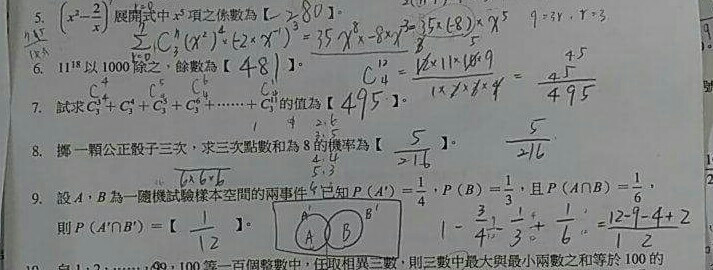 5. (x² − 2/x)⁷ 展開式中 x⁵ 項之係數為【 -280 】。
Σ C (x²)⁴·(-2×x⁻¹)³ = 35x⁸×-8×x⁻³ = 35×(-8)×x⁵
6. 11¹⁸ 以 1000 除之,餘數為【 481 】。
C₄¹² = 12×11×10×9 / 1×2×3×4 = 495
7. 試求 C₃³+C₃⁴+C₃⁵+C₃⁶+……+C₃¹¹ 的值為【 495 】。
8. 擲一顆公正骰子三次,求三次點數和為 8 的機率為【 5/216 】。 5/216
6×6×6
9. 設 A、B 為一隨機試驗樣本空間的兩事件,已知 P(A′)=1/4,P(B)=1/3,且 P(A∩B)=1/6,
則 P(A′∩B′)=【 1/12 】。 A' A B B' 1 - 3/4 - 1/3 + 1/6 = 12-9-4+2 / 12
自 1、2、……、99、100 等一百個整數中,任取相異三數,則三數中最大與最小兩數之和等於 100 的